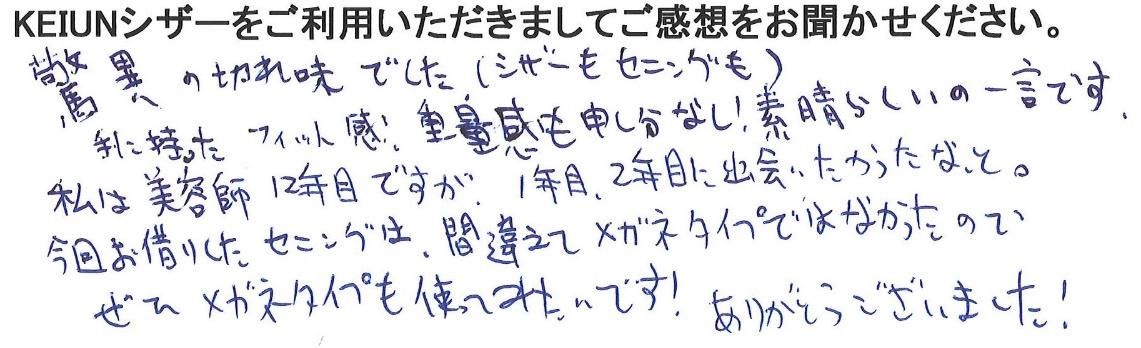 KEIUNシザーをご利用いただきましてご感想をお聞かせください。
驚異の切れ味でした(シザーもセニングも)
手に持ったフィット感!重量感も申し分なし!素晴らしいの一言です.
私は美容師12年目ですが、1年目、2年目に出会いたかったなぁと。
今回お借りしたセニングは、間違えてメガネタイプではなかったので
ぜひメガネタイプも使ってみたいです!ありがとうございました!